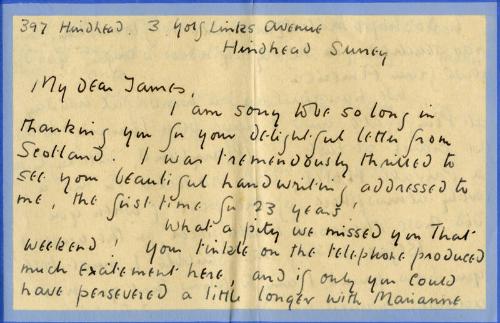 397 Hindhead. 3 Golf Links Avenue
Hindhead Surrey
My Dear James,
I am sorry to be so long in
thanking you for your delightful letter from
Scotland. I was tremendously thrilled to
see your beautiful handwriting addressed to
me, the first time for 23 years!
What a pity we missed you that
weekend! your tinkle on the telephone produced
much excitement here, and if only you could
have persevered a little longer with Marianne